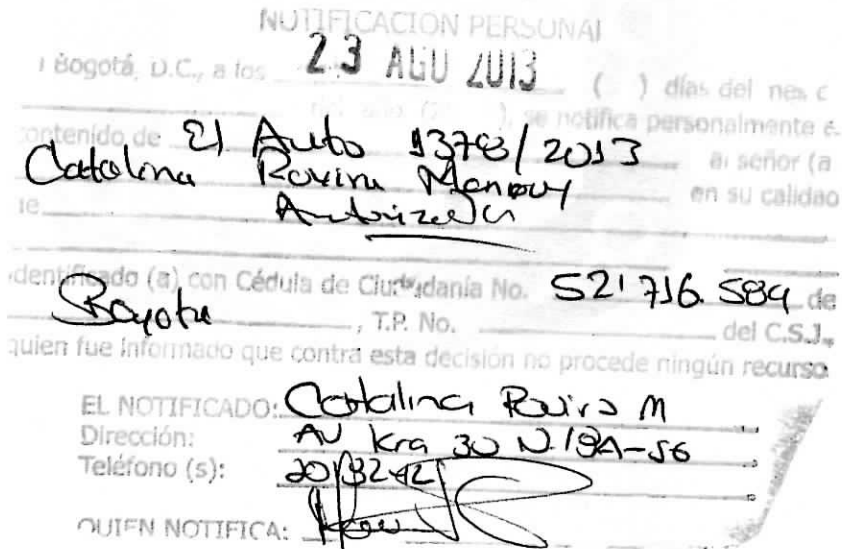 NOTIFICACION PERSONAL
Bogotá, D.C., a los 23 AGO 2013 ( ) días del mes
del año, (20 ), se notifica personalmente
contenido de El Auto 13798/2013 al señor (a
Catalina Monroy en su calidad
Autorizada
identificado (a) con Cédula de Ciudadanía No. 52'716.584 de
Bogota, T.P. No. del C.S.J.,
quien fue informado que contra esta decisión no procede ningún recurso
EL NOTIFICADO: Catalina M
Dirección: AV kra 30 N. 19A-56
Teléfono (s):
QUIEN NOTIFICA: